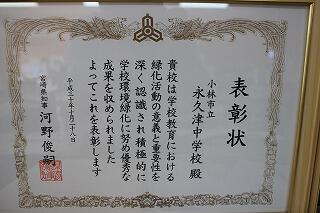 表彰状
小林市立
永久津中学校 殿
貴校は学校教育における
緑化活動の意義と重要性を
深く認識され積極的に
学校環境緑化に努め優秀な
成果を収められました
よってこれを表彰します
平成三十年十月二十八日
宮崎県知事 河野俊嗣